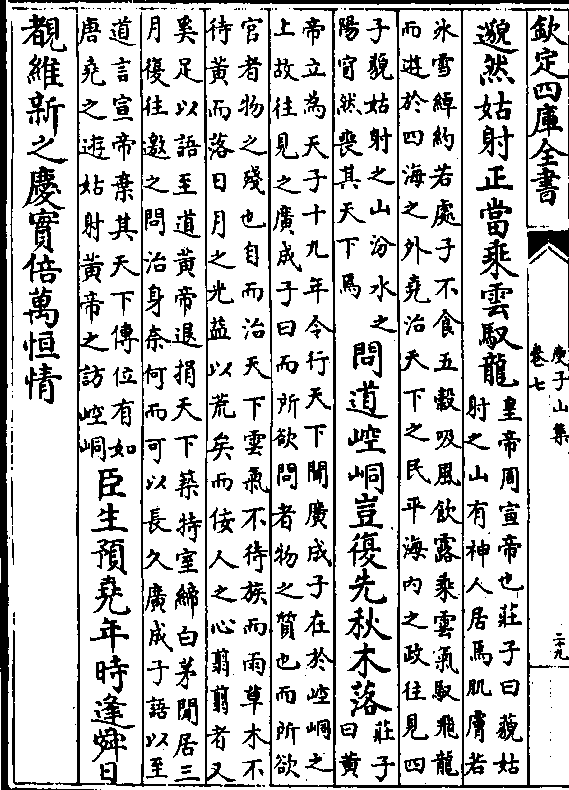 欽定四庫全書
庾子山集
卷七
二十九
邈然姑射正當乘雲馭龍
皇帝周宣帝也莊子曰藐姑
射之山有神人居焉肌膚若
冰雪綽約若處子不食五穀吸風飲露乘雲氣馭飛龍
而遊於四海之外堯治天下之民平海内之政往見四
子藐姑射之山汾水之
陽窅然喪其天下焉
問道崆峒豈復先秋木落
莊子
曰黄
帝立為天子十九年令行天下聞廣成子在於崆峒之
上故往見之廣成子曰而所欲問者物之質也而所欲
官者物之殘也自而治天下雲氣不待族而雨草木不
待黄而落日月之光益以荒矣而佞人之心翦翦者又
奚足以語至道黄帝退捐天下築特室締白茅閒居三
月復往邀之問治身奈何而可以長久廣成子語以至
道言宣帝棄其天下傳位有如
唐堯之遊姑射黄帝之訪崆峒
臣生預堯年時逢舜日
覩維新之慶實倍萬恒情